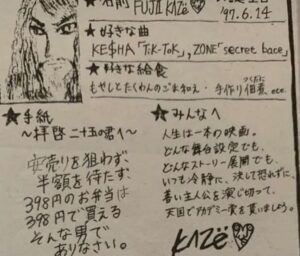 ★名前 FUJII KAZE
'97.6.14
★好きな曲
KE$HA「TiK-ToK」, ZONE「secret base」
★好きな給食
もやしとたくわんのごま和え・手作り佃煮 etc.
つくだに
★手紙
～拝啓 二十五の君へ～
安売りを狙わず、
半額を待たず、
398円のお弁当は
398円で買える
そんな男で
ありなさい。
★みんなへ
人生は一本の映画。
どんな舞台設定でも、
どんなストーリー展開でも、
いつも冷静に、決して怒れずに、
善い主人公を演じ切って、
天国でアカデミー賞を貰いましょう。
KAZё